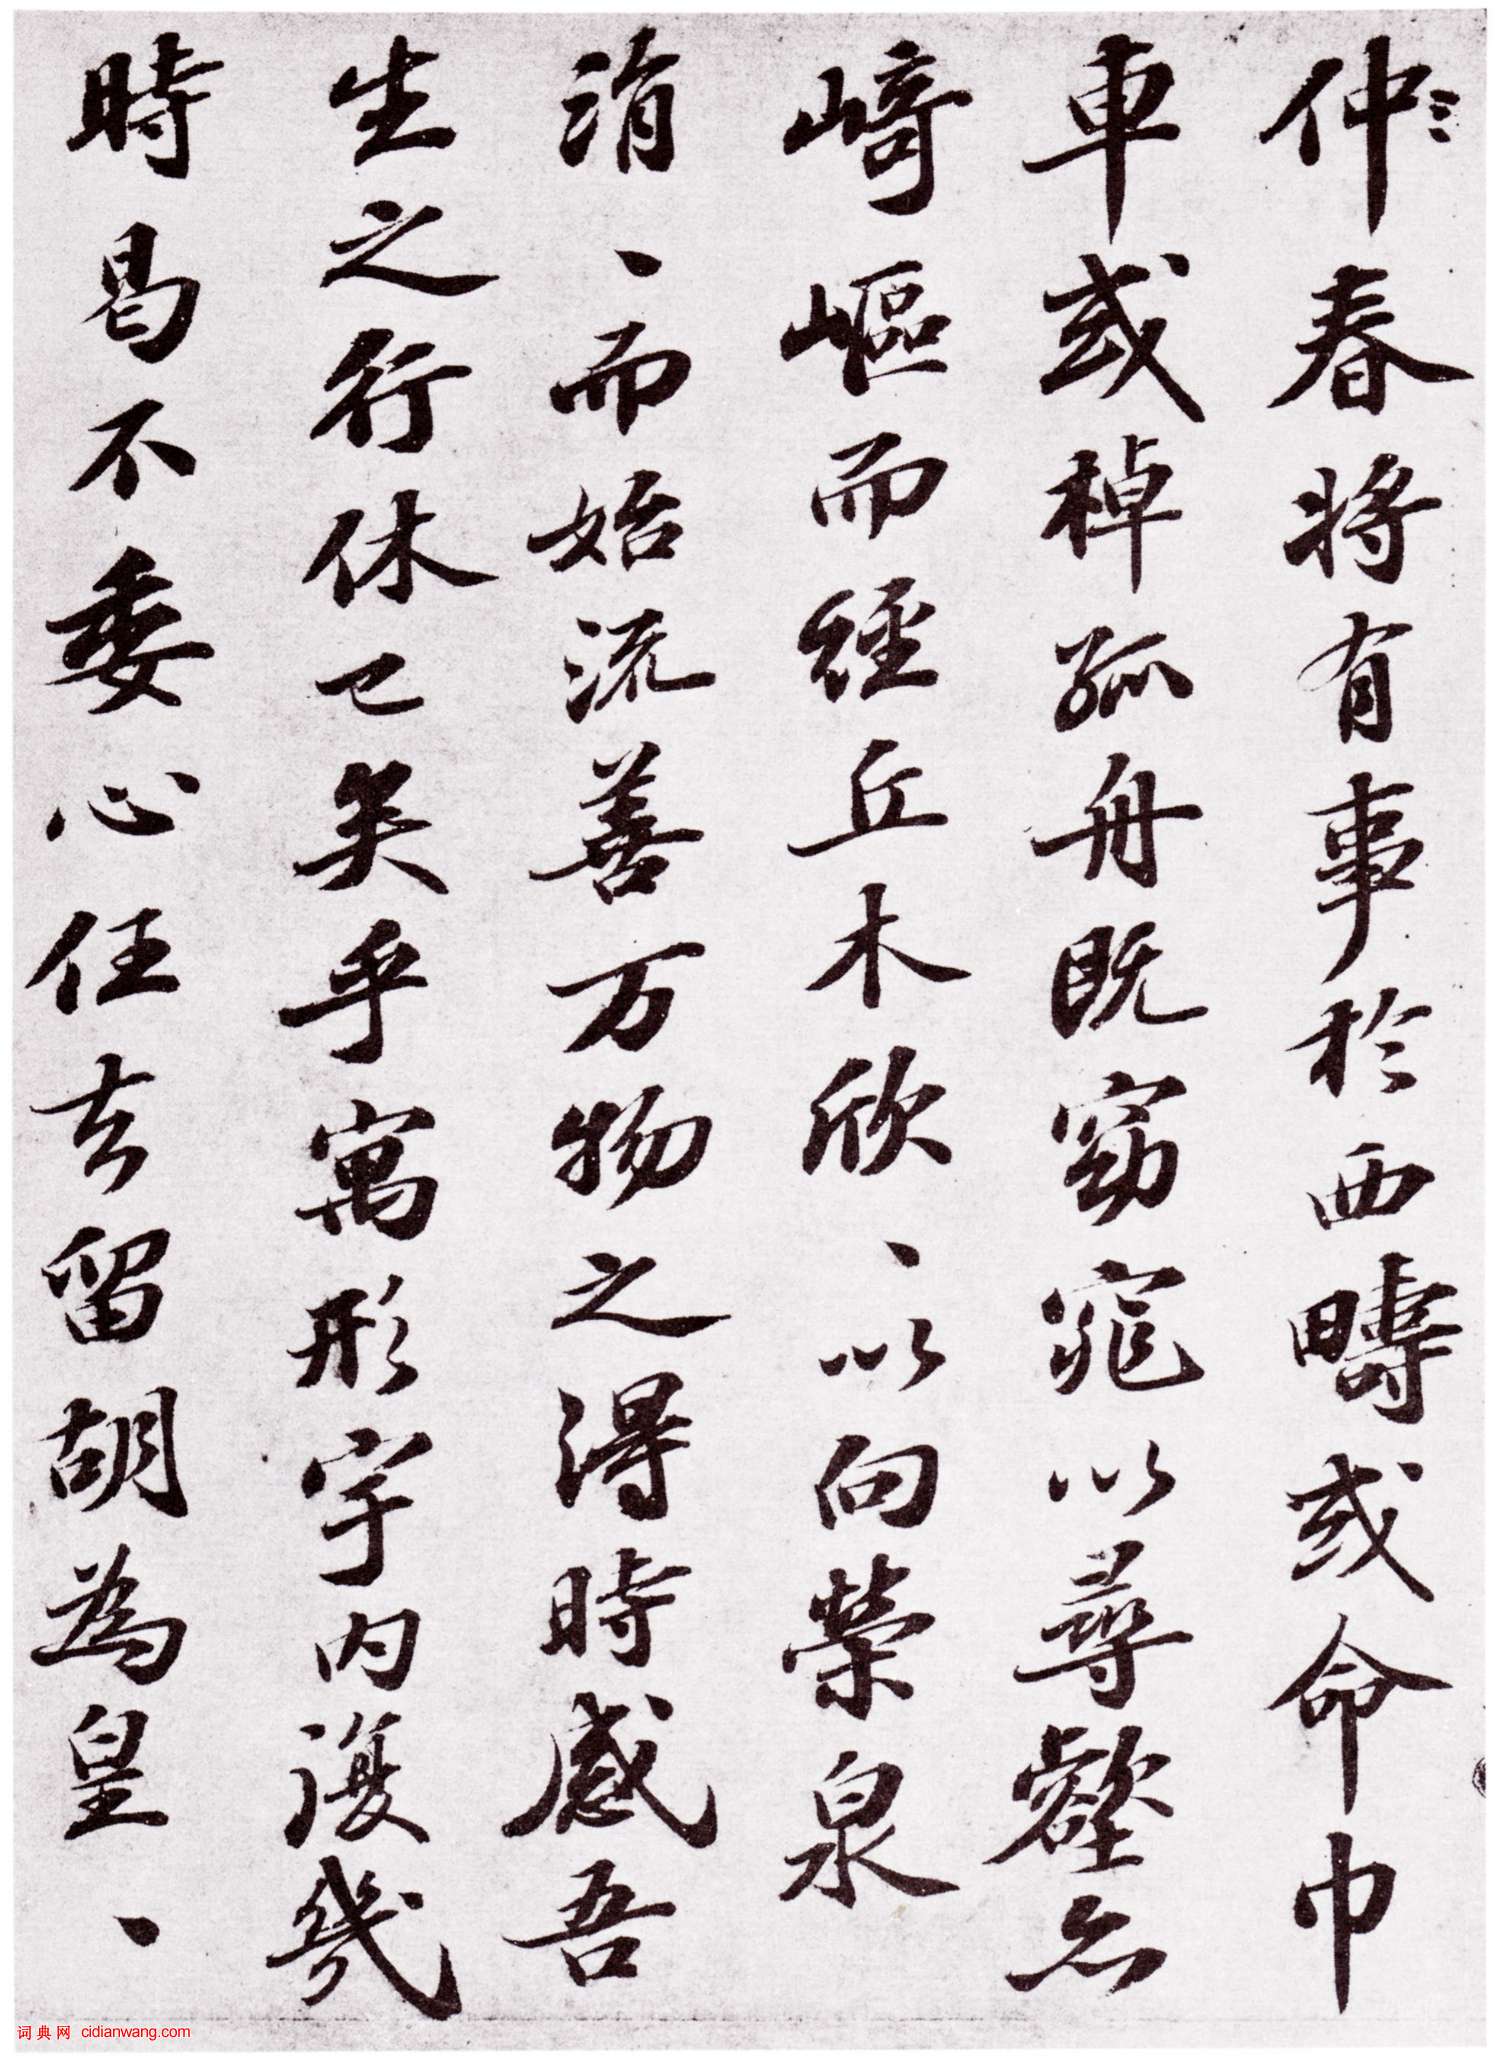 仲春將有事於西疇或命巾
車或棹孤舟既窈窕以尋壑亦
崎嶇而經丘木欣、以向榮泉
涓、而始流善万物之得時感吾
生之行休已矣乎寓形宇内復幾
時曷不委心任去留胡為皇、
词典网 cidianwang.com